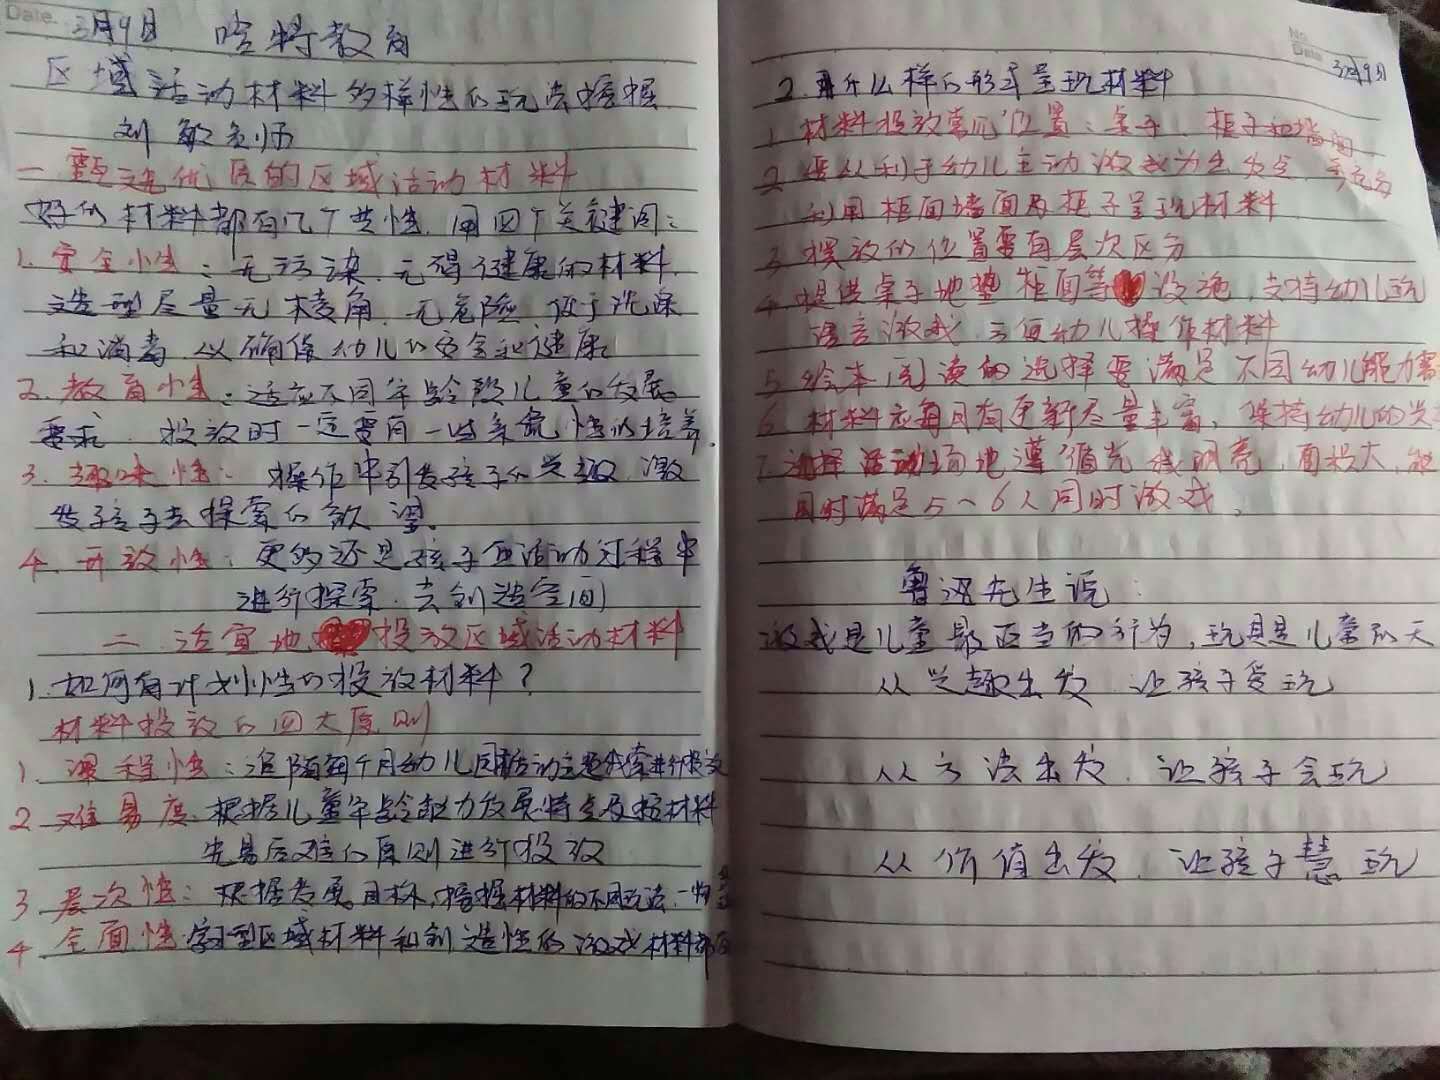 Date. 3月9日 哈特教育
区域活动材料多样性的玩法挖掘
刘敏老师
一 甄选优质的区域活动材料
好的材料都有几个共性.用四个关键词:
1.安全性:无污染.无碍健康的材料.
造型尽量无棱角.无危险.便于洗涤
和消毒.以确保幼儿的安全和健康.
2.教育性:适应不同年龄段儿童的发展
要求.投放时一定要有一些系统性的培养.
3.趣味性:操作中引发孩子的兴趣.激
发孩子去探索的欲望.
4.开放性:更多还是孩子在活动过程中
进行探索.去创造空间
二 适宜地投放区域活动材料
1.如何有计划性的投放材料?
材料投放的四大原则
1.课程性:追随每个月幼儿园活动主题线索进行投放
2 难易度.根据儿童年龄能力发展特点及材料
先易后难的原则进行投放
3 层次性:根据发展目标,挖掘材料的不同玩法.一物
4 全面性 学习型区域材料和创造性的游戏材料都
No.
Date 3月9日
2.用什么样的形式呈现材料
1 材料投放常见位置:桌子.柜子和墙面
2 要从利于幼儿主动游戏为出发点.
利用柜面墙面及柜子呈现材料
3 投放的位置要有层次区分
4 提供桌子地垫柜面等设施.支持幼儿玩
语言游戏.方便幼儿操作材料
5 绘本阅读的选择要满足不同幼儿能力需
6.材料应每月有更新尽量丰富,保持幼儿的兴
7 选择活动场地遵循光线明亮,面积大,能
同时满足5～6人同时游戏.
鲁迅先生说:
游戏是儿童最正当的行为,玩具是儿童的天
从兴趣出发 让孩子爱玩
从方法出发.让孩子会玩
从价值出发.让孩子慧玩